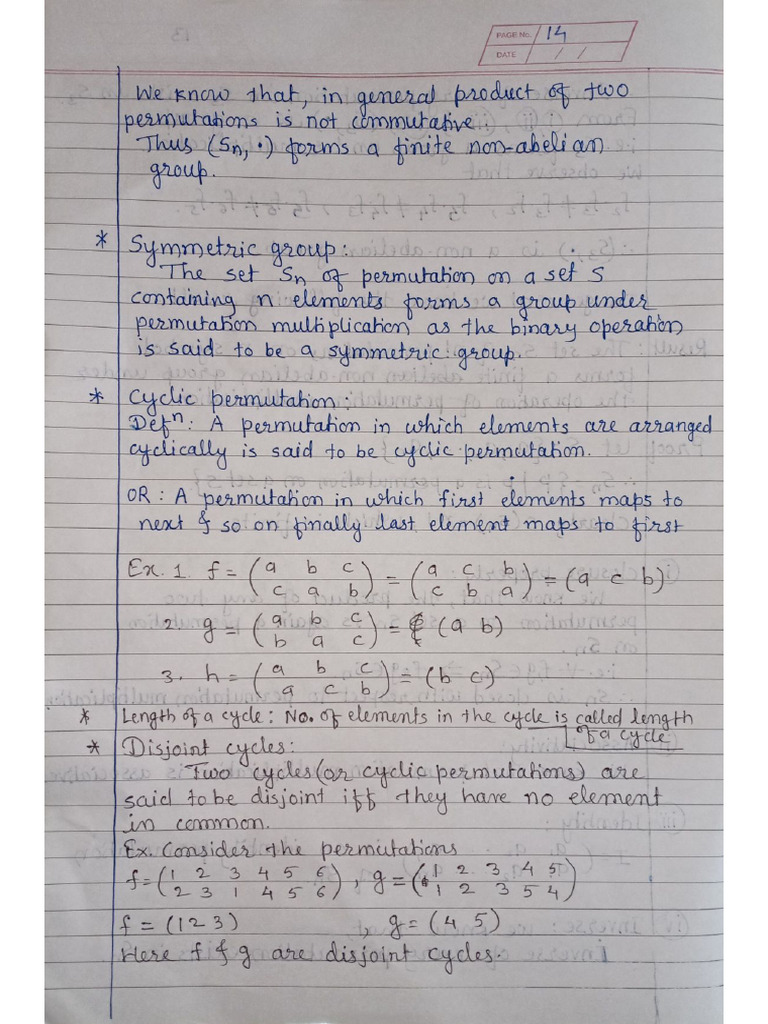 PAGE No. 14
DATE / /
We know that, in general product of two
permutations is not commutative.
Thus (Sn, •) forms a finite non-abelian
group.
* Symmetric group:
The set Sn of permutation on a set S
containing n elements forms a group under
permutation multiplication as the binary operation
is said to be a symmetric group.
* Cyclic permutation:
Defⁿ: A permutation in which elements are arranged
cyclically is said to be cyclic permutation.
OR: A permutation in which first elements maps to
next & so on finally last element maps to first
Ex. 1. f = (a b c / c a b) = (a c b / c b a) = (a c b)
2. g = (a b c / b a c) = (a b)
3. h = (a b c / a c b) = (b c)
* Length of a cycle: No. of elements in the cycle is called length
of a cycle
* Disjoint cycles:
Two cycles (or cyclic permutations) are
said to be disjoint iff they have no element
in common.
Ex. Consider the permutations
f = (1 2 3 4 5 6 / 2 3 1 4 5 6), g = (1 2 3 4 5 / 1 2 3 5 4)
f = (1 2 3) , g = (4 5)
Here f & g are disjoint cycles.